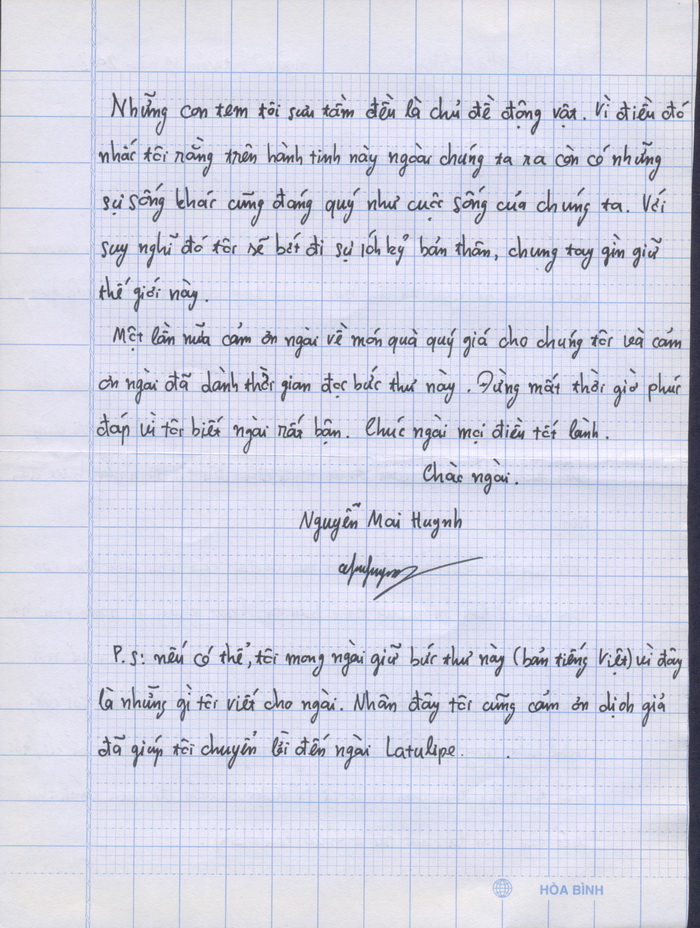 Những con tem tôi sưu tầm đều là chủ đề động vật. Vì điều đó
nhắc tôi rằng trên hành tinh này ngoài chúng ta ra còn có những
sự sống khác cũng đáng quý như cuộc sống của chúng ta. Với
suy nghĩ đó tôi sẽ bớt đi sự ích kỷ bản thân, chung tay gìn giữ
thế giới này.
Một lần nữa cảm ơn ngài về món quà quý giá cho chúng tôi và cảm
ơn ngài đã dành thời gian đọc bức thư này. Đừng mất thời giờ phúc
đáp vì tôi biết ngài rất bận. Chúc ngài mọi điều tốt lành.
Chào ngài.
Nguyễn Mai Huynh
P.s: nếu có thể, tôi mong ngài giữ bức thư này (bản tiếng Việt) vì đây
là những gì tôi viết cho ngài. Nhân đây tôi cũng cảm ơn dịch giả
đã giúp tôi chuyển lời đến ngài Latulipe.
HÒA BÌNH